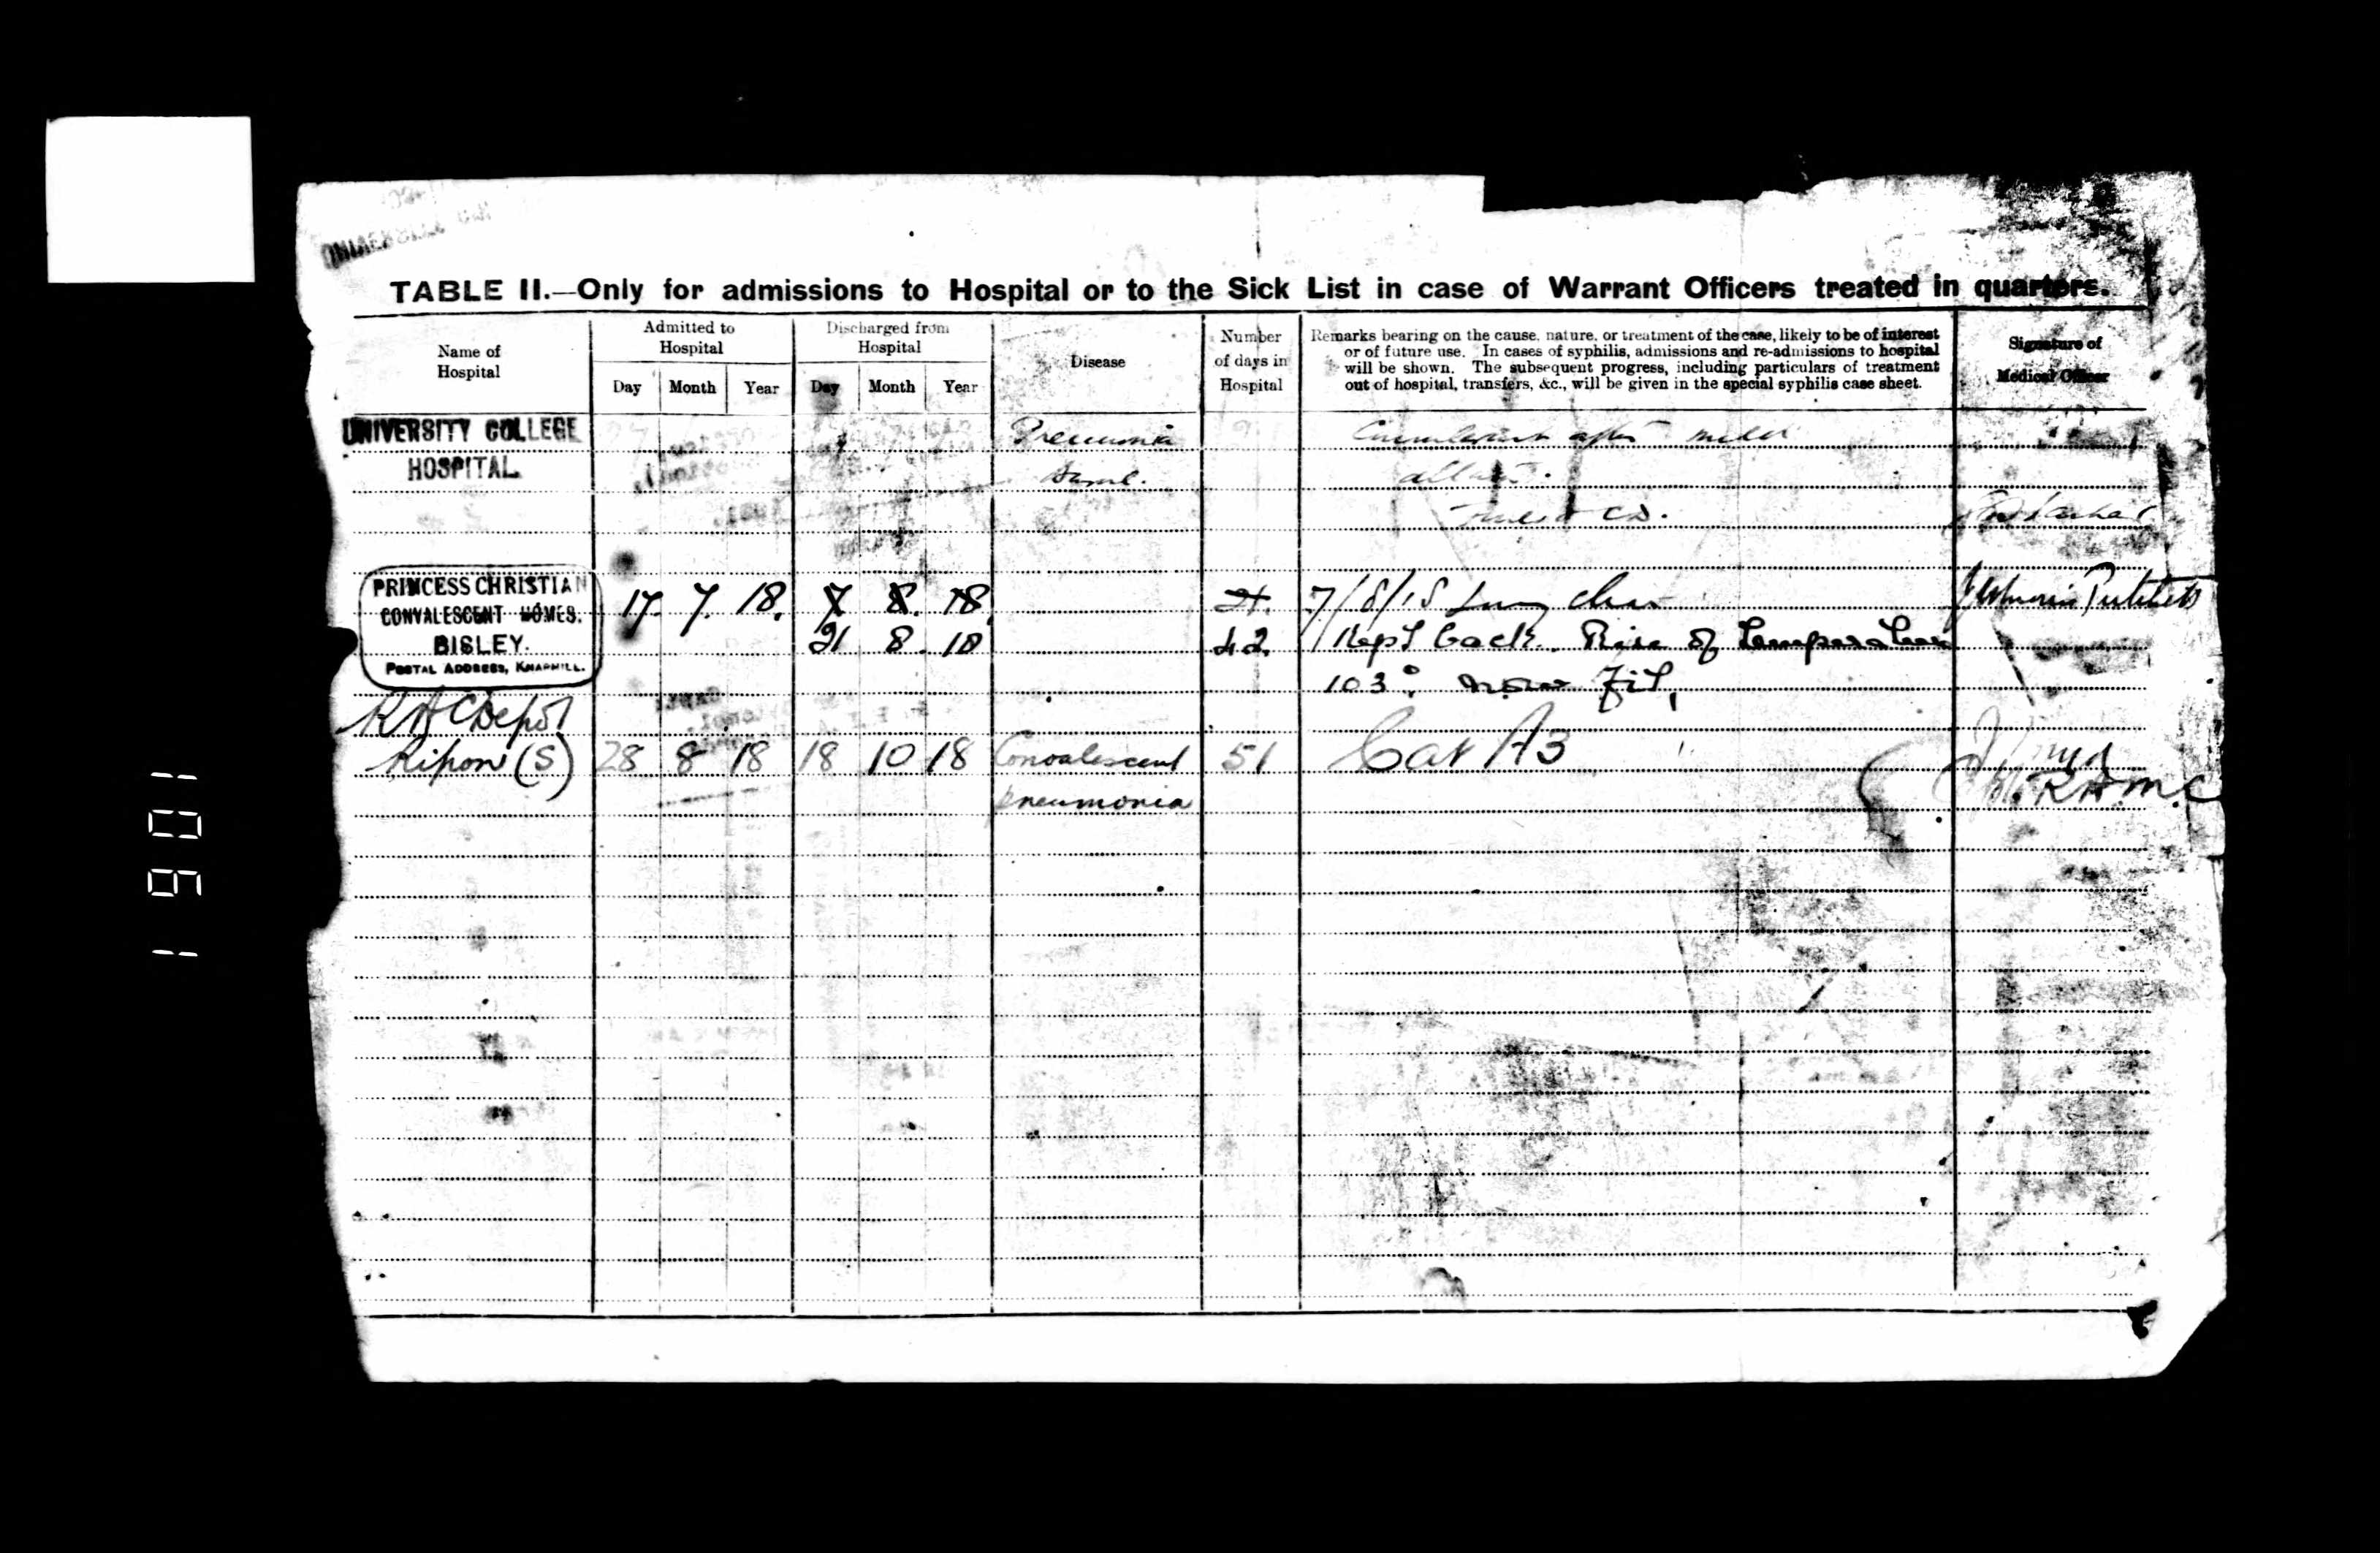 TABLE II.—Only for admissions to Hospital or to the Sick List in case of Warrant Officers treated in quarters.
Name of Hospital
Admitted to Hospital
Discharged from Hospital
Disease
Number of days in Hospital
Remarks bearing on the cause, nature, or treatment of the case, likely to be of interest
or of future use. In cases of syphilis, admissions and re-admissions to hospital
will be shown. The subsequent progress, including particulars of treatment
out of hospital, transfers, &c., will be given in the special syphilis case sheet.
Signature of Medical Officer
Day Month Year Day Month Year
UNIVERSITY COLLEGE Pneumonia after mild
HOSPITAL.
C.D.
PRINCESS CHRISTIAN
CONVALESCENT HOMES.
BISLEY.
POSTAL ADDRESS, KNAPHILL.
17. 7. 18. 7 8. 18 21. 7/8/18
21 8. 18 42. Kept back. Rise of temperature
103°. now fit,
Depot
Ripon (S) 28 8 18 18 10 18 Convalescent 51 Cat A3
pneumonia R.A.M.C
1901